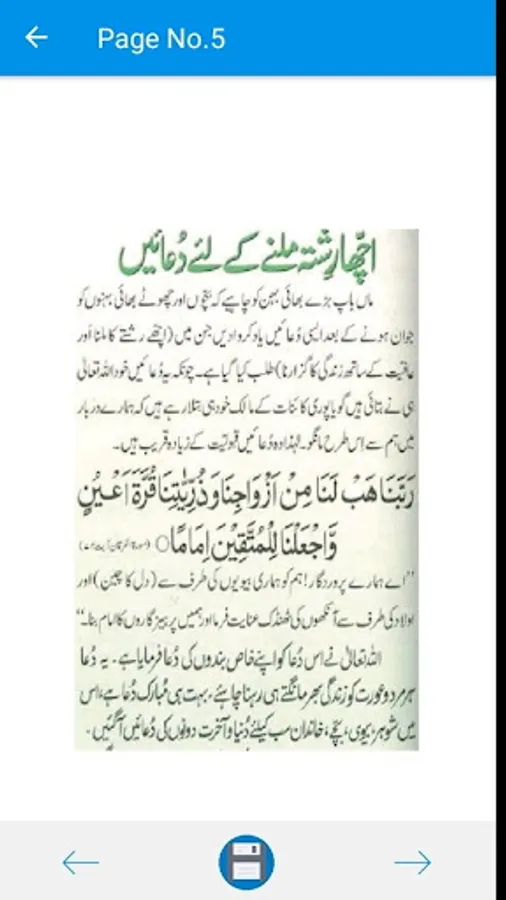 Page No.5
اچھا رشتہ ملنے کے لئے دُعائیں
ماں باپ بڑے بھائی بہن کو چاہیے کہ بچوں اور چھوٹے بھائی بہنوں کو
جوان ہونے کے بعد ایسی دُعائیں یاد کروا دیں جن میں (اچھے رشتے کا ملنا اور
عافیت کے ساتھ زندگی کا گزارنا) طلب کیا گیا ہے۔ چونکہ یہ دُعائیں خود اللہ تعالٰی
ہی نے بتائی ہیں گویا پوری کائنات کے مالک خود ہی بتلا رہے ہیں کہ ہمارے دربار
میں ہم سے اِس طرح مانگو۔ لہذا دہ دُعائیں قبولیت کے زیادہ قریب ہیں۔
رَبَّنَا هَبْ لَنَا مِنْ اَزْوَاجِنَا وَذُرِّیّٰتِنَا قُرَّۃَ اَعْیُنٍ
وَّاجْعَلْنَا لِلْمُتَّقِیْنَ اِمَامًا○
"اے ہمارے پروردگار! ہم کو ہماری بیویوں کی طرف سے (دل کا چین) اور
اولاد کی طرف سے آنکھوں کی ٹھنڈک عنایت فرما اور ہمیں پرہیزگاروں کا امام بنا۔"
اللہ تعالٰی نے اس دُعا کو اپنے خاص بندوں کی دُعا فرمایا ہے۔ یہ دُعا
ہر مرد و عورت کو زندگی بھر مانگتے ہی رہنا چاہئے، بہت ہی مُبارک دُعا ہے، اس
میں شوہر، بیوی، بچے، خاندان سب کیلئے دُنیا و آخرت دونوں کی دُعائیں آ گئیں۔